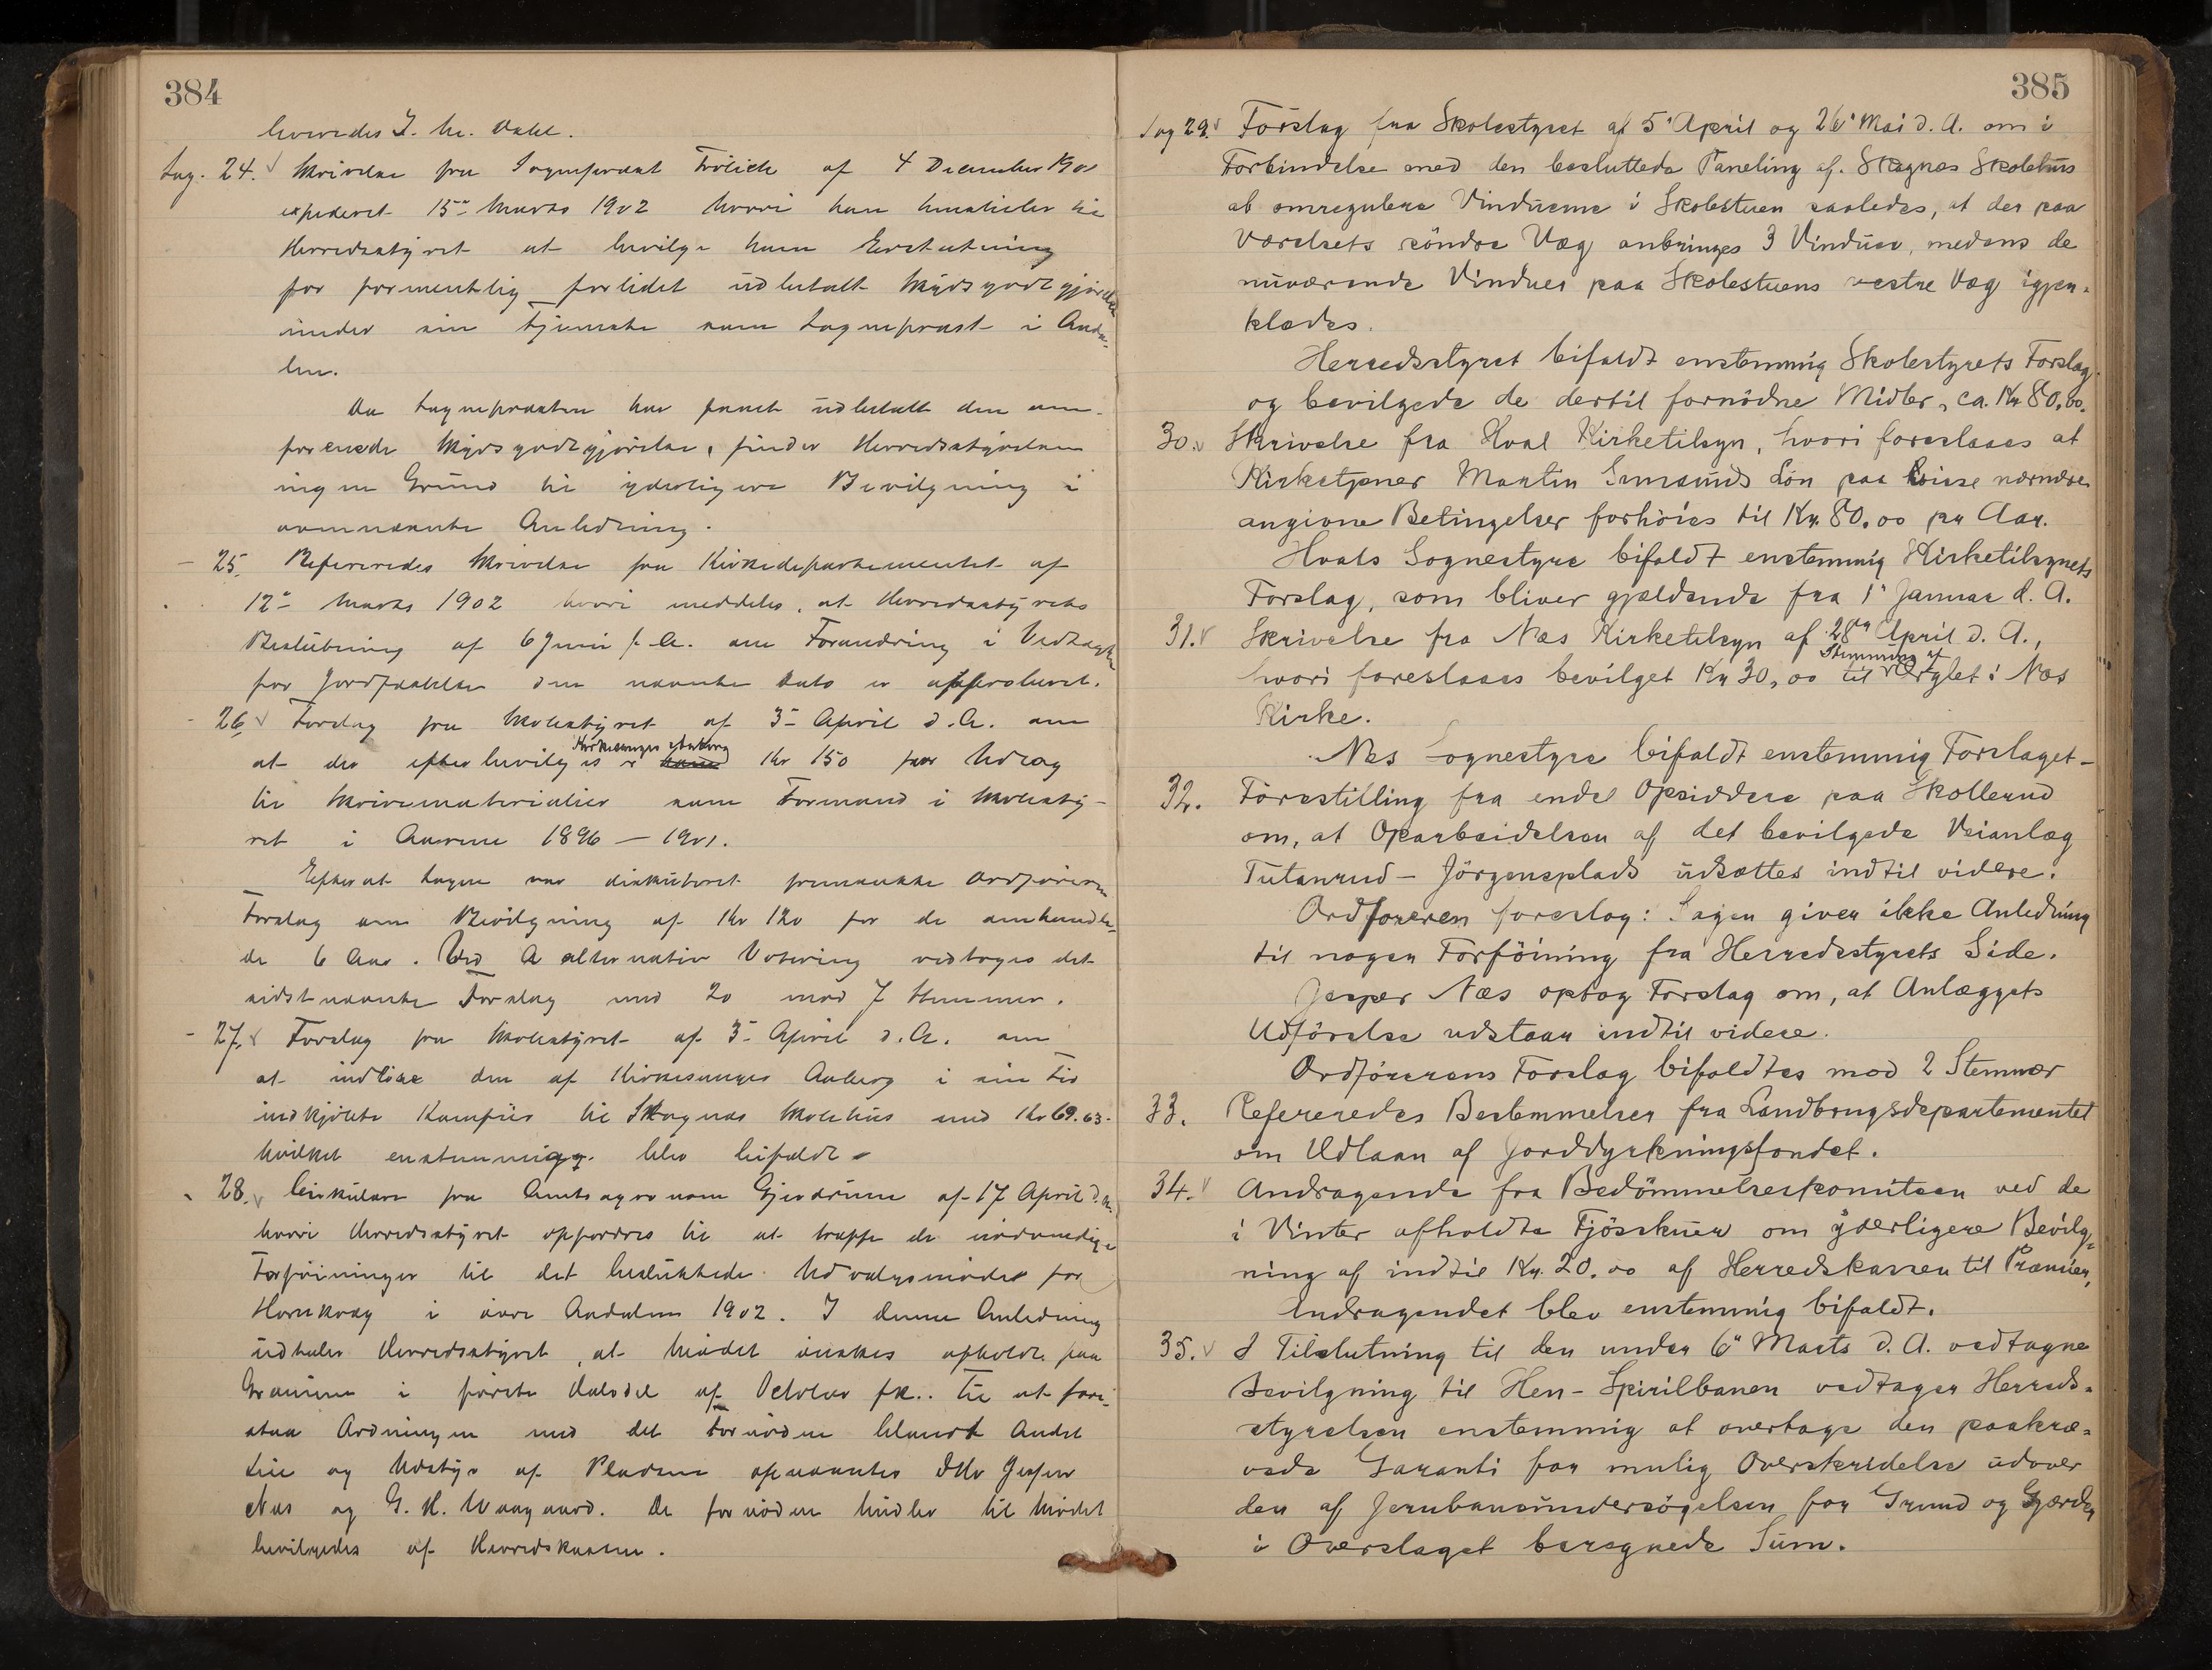 384
hverredes I. M. Dahl.
Sag. 24. Skrivelse fra Sognepræst Frölich af 4 December 1901
expederet 15de Marts 1902 hvori han henstiller til
Herredsstyret at bevilge ham Erstatning
for formentlig forlidet udbetalt Skydsgodtgjørelse
under sin Tjeneste som Sognepræst i Aada-
len.
Da Sognepræsten har faaet udbetalt den om-
forenede Skydsgodtgjørelse, finder Herredsstyrelsen
ingen Grund til yderligere Bevilgning i
ovennævnte Anledning.
- 25. Refereredes Skrivelse fra Kirkedepartementet af
12te Marts 1902 hvori meddeles, at Herredsstyrets
Beslutning af 6 Juni f. A. om Forandring i Vedtægter
for Jordfæstelse den nævnte Dato er approberet.
- 26. Forslag fra Skolestyret af 3de April d. A. om
at der efterbevilges Kirkesanger Anberg Kr 150 for Udlæg
til Skrivematerialier som Formand i Skolesty-
ret i Aarene 1896 — 1901.
Efterat Sagen var diskuteret fremsatte Ordføreren
Forslag om Bevilgning af Kr 120 for de omhandle-
de 6 Aar. Ved alternativ Votering vedtoges det
sidstnævnte Forslag med 20 mod 7 Stemmer.
- 27. Forslag fra Skolestyret af 3de April d. A. om
at indløse den af Kirkesanger Anberg i sin Tid
indkjøbte Kamfiis til Skagnæs Skolehus med Kr 69.63.
hvilket enstemmigg. blev bifaldt
28. Cirkulære fra Amtsagronom Gjerdrum af 17 April d. A.
hvori Herredsstyret opfordres til at træffe de nødvendige
Forføininger til det besluttede Udvalgsmøde for
Hornkvæg i øvre Aadalen 1902. I denne Anledning
udtaler Herredsstyret, at Mødet ønskes afholdt paa
i første Halvdel af Oktober fk.. Til at fore-
staa Ordningen med det fornødne blandt Andet
Leie og Udstyr af Pladsen opnævntes DHr Jesper
Næs og G. H. Waagaard. De fornødne Midler til Mødet
bevilgedes af Herredskassen.
385
Sag 29. Forslag fra Skolestyret af 5' April og 26' Mai d. A. om i
Forbindelse med den besluttede Paneling af Skagnæs Skolehus
at omregulere Vinduerne i Skolestuen saaledes, at der paa
Værelsets söndre Væg anbringes 3 Vinduer, medens de
nuværende Vinduer paa Skolestuens vestre Væg igjen-
klædes.
Herredsstyret bifaldt enstemmig Skolestyrets Forslag
og bevilgede de dertil fornödne Midler, ca. Kr 80,00.
30. Skrivelse fra Hval Kirketilsyn, hvori foreslaaes at
Kirketjener Martin Lön paa visse nærmere
angivne Betingelser forhöies til Kr. 80.00 pr Aar.
Hvals Sognestyre bifaldt enstemmig Kirketilsynets
Forslag, som bliver gjældende fra 1' Januar d. A.
31. Skrivelse fra Næs Kirketilsyn af 28de April d. A.,
hvori foreslaaes bevilget Kr 30,00 til Stemning af Orglet i Næs
Kirke.
Næs Sognestyre bifaldt enstemmig Forslaget -
32. Forestilling fra endel Opsiddere paa Skollerud
om, at Oparbeidelsen af det bevilgede Veianlæg
Tutanrud - Jörgensplads udsættes indtil videre.
Ordföreren foreslog: Sagen giver ikke Anledning
til nogen Forföining fra Herredsstyrets Side.
Jesper Næs optog Forslag om, at Anlæggets
Udförelse udstaar indtil videre.
Ordförerens Forslag bifaldtes mod 2 Stemmer
33. Refereredes Bestemmelser fra Landbrugsdepartementet
om Udlaan af Jorddyrkningsfondet.
34. Andragende fra Bedömmelseskomiteen ved de
i Vinter afholdte Fjösskuer om yderligere Bevilg-
ning af indtil Kr. 20.00 af Herredskassen til Præmier,
Andragendet blev enstemmig bifaldt.
35. I Tilslutning til den under 6te Marts d. A. vedtagne
Bevilgning til Hen-Spirilbanen vedtager Herreds-
styrelsen enstemmig at overtage den paakræ-
vede Garanti for mulig Overskridelse udover
den af Jernbaneundersögelsen for Grund og Gjærder
i Overslaget beregnede Sum.